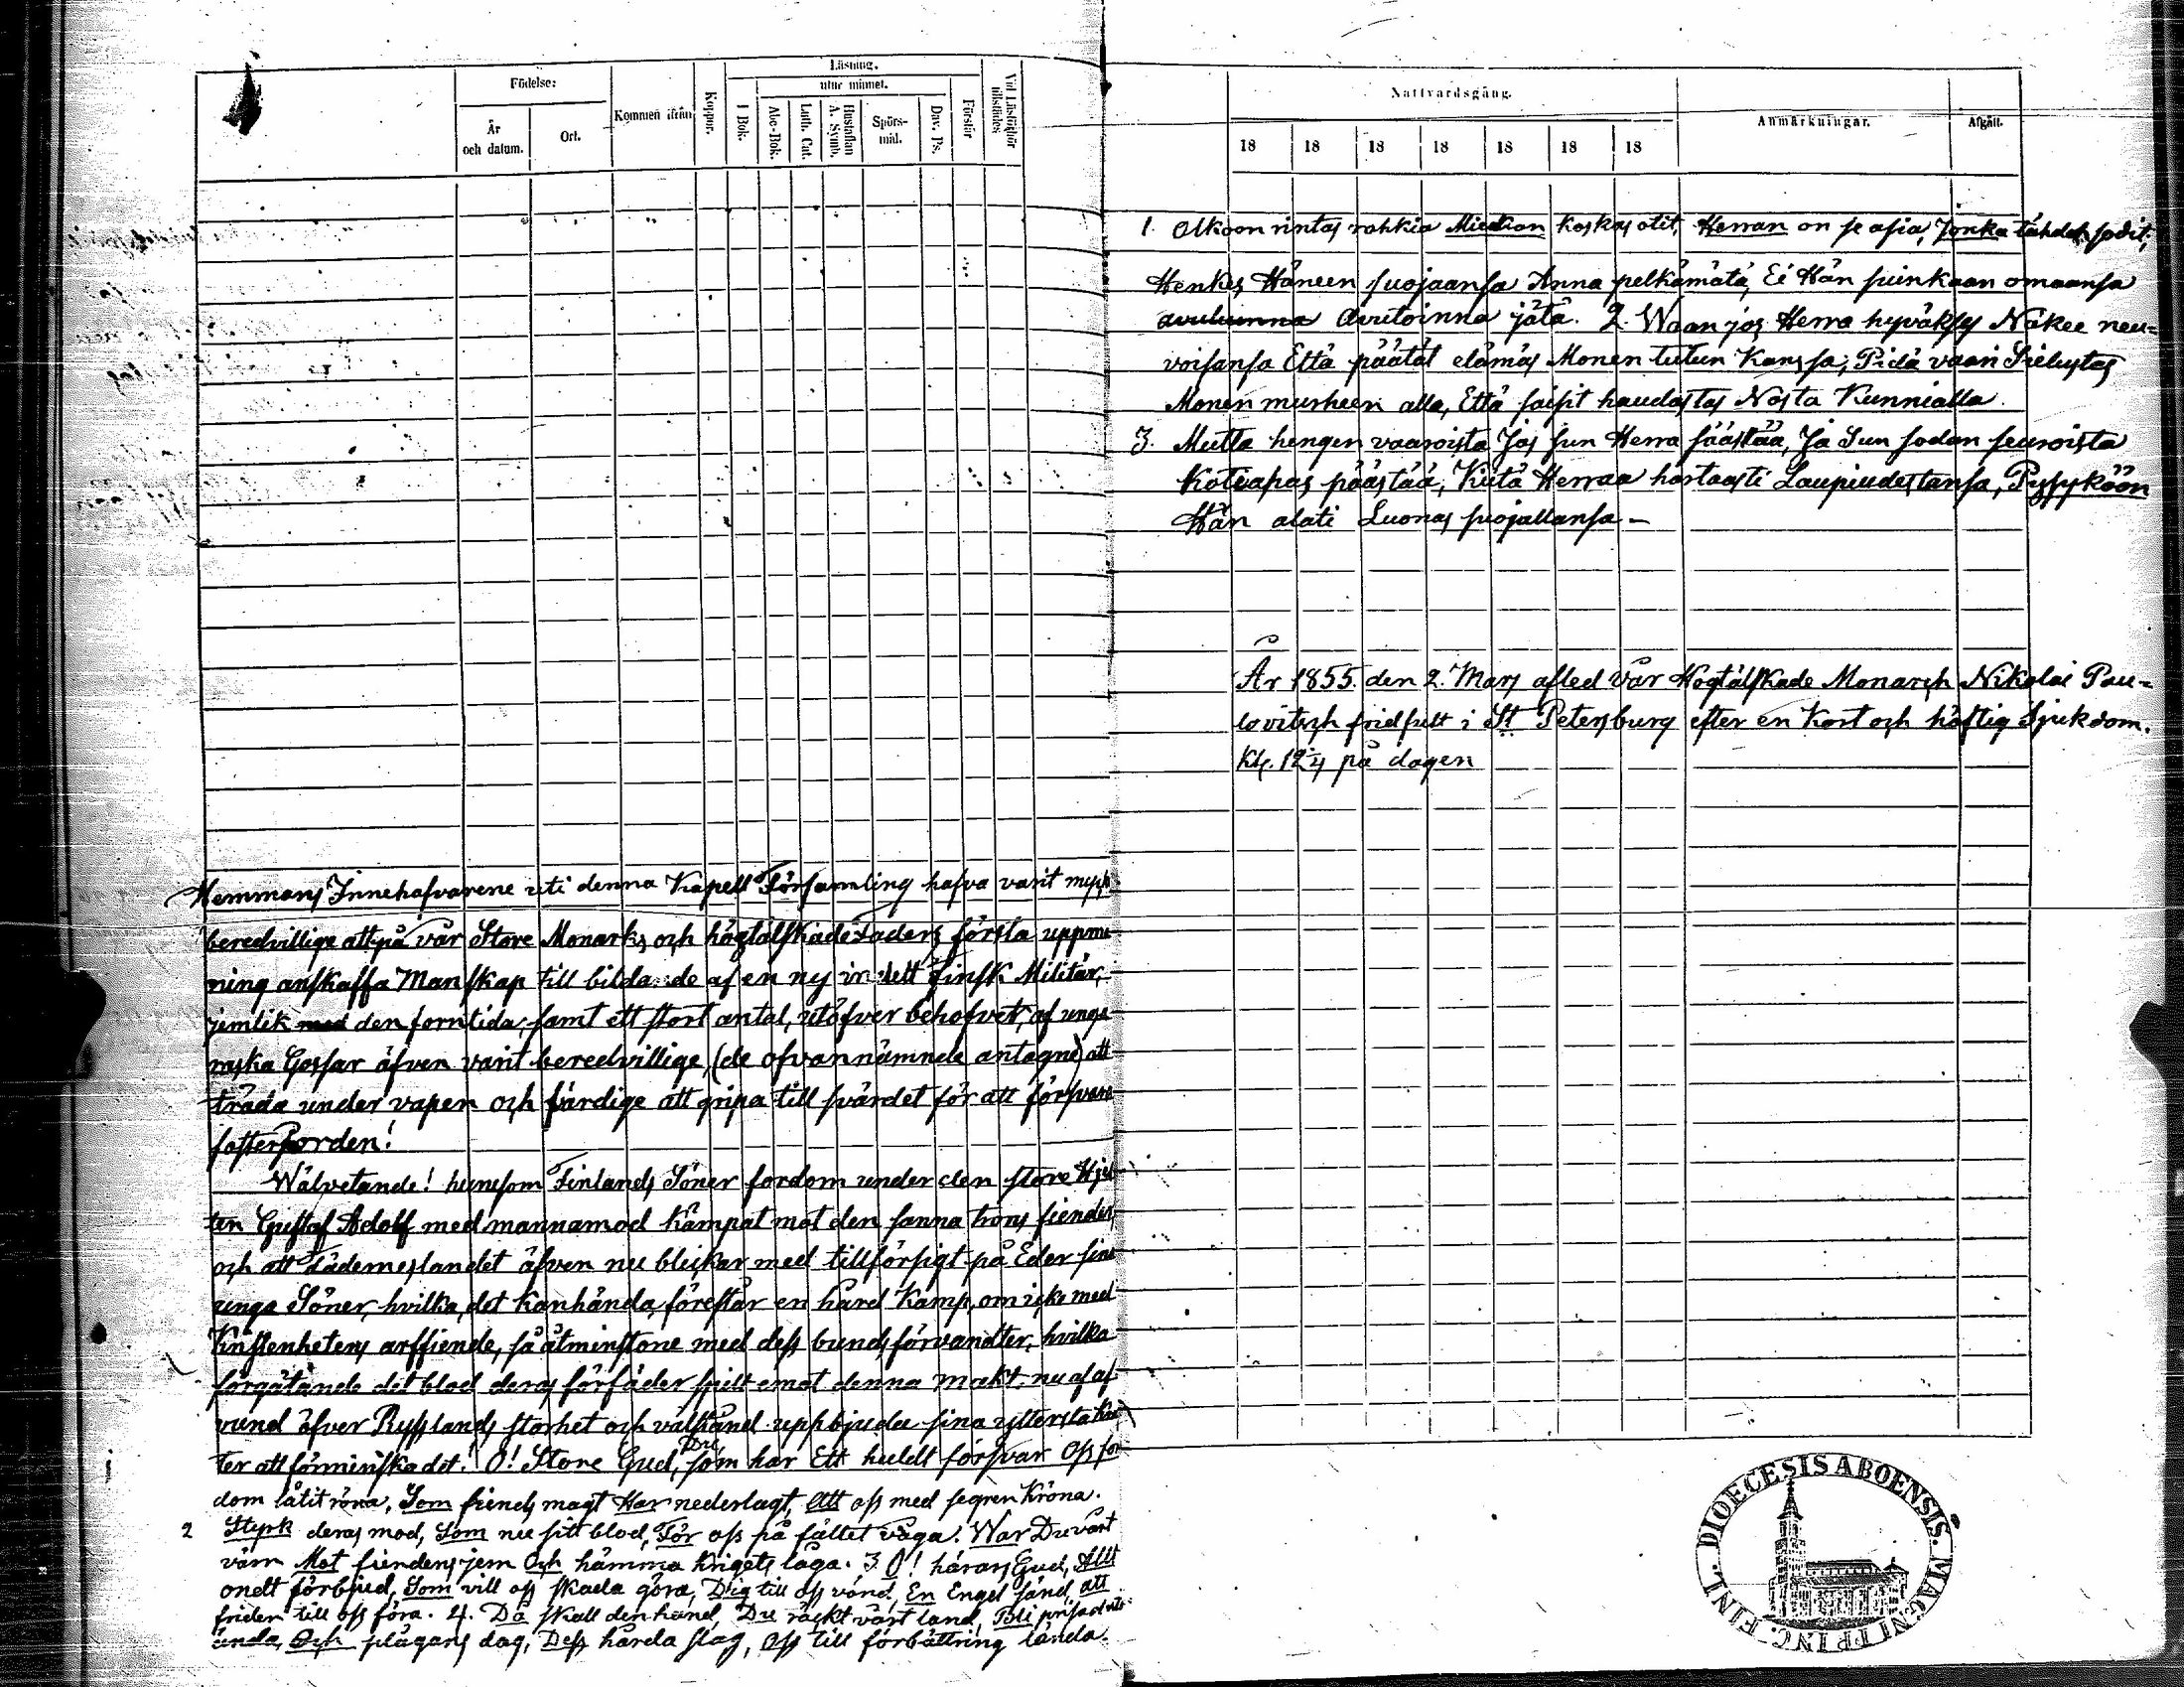 Födelse:
År och datum.
Ort.
Kommen ifrån
Koppor.
Läsning.
utur minnet.
I Bok.
Abc-Bok.
Luth. Cat.
Hustaflan A. Symb.
Spörs-mål.
Dav. Ps.
Förstår
Vid Läsförhör tillstädes
Hemmans Innehafvarene uti denna Kapell Församling hafva varit myck
beredvillige att på vår Store Monarks och högtälskade Faders första uppma
ning anskaffa Manskap till bildande af en ny indelt finsk Militär,
jemlik med den forntida, samt ett stort antal, utöfver behofvet, af unga
raska Gossar äfven varit beredvillige, (de ofvannämnde antagne) att
träda under vapen och färdige att gripa till svärdet för att försvara
fosterjorden!
Wälvetande! hurusom Finlands Söner fordom under den store Hjel
ten Gustaf Adolf med mannamod kämpat mot den sanna trons fiender,
och att Fäderneslandet äfven nu blickar med tillförsigt på Eder sina
unga Söner, hvilka, det kanhända, förestår en hård Kamp, om icke med
Kristenhetens arffiende, så åtminstone med dess bundsförvandter, hvilka
förgätande det blod deras förfäder spilt emot denna makt, nu af af
vund öfver Rysslands storhet och välstånd uppbjuda sina yttersta kraf
ter att förminska det! O! Store Gud, Du som har Ett huldt försvar Oss for
dom låtit röna, Som fiends magt Har nederlagt, Att oss med segren kröna.
2 Styrk deras mod, Som nu sitt blod, För oss på fältet våga. War Du vårt
värn Mot fiendens jern Och hämma krigets låga. 3. O! härars Gud, Allt
ondt förbjud, Som vill oss skada göra, Dig till oss vänd, En Engel sänd, att
friden till oss föra. 4. Då skall den hand, Du räckt vårt land, Bli prisad utan
ända, Och plågans dag, Dess hårda slag, Oss till förbättring lända.
Nattvardsgång.
18 18 18 18 18 18 18
Anmärkningar.
Afgått.
1. Olkoon rintas rohkia Miekan koskas otit, Herran on se asia, Jonka tähden sodit,
Henkes Häneen suojaansa Anna pelkämätä, Ei Hän suinkaan omaansa
Avutoinna jätä. 2. Waan jos Herra hyväksy Näkee neu-
voisansa Että päätät elämäs Monen tutun Kanssa, Pidä vaan Sielustas
Monen murheen alla, Että saisit haudastas Nosta Kunnialla.
3. Mutta hengen vaaroista Jos sun Herra säästää, Ja Sun sodan seuroista
Kotiapas päästää, Kiitä Herraa hartaasti Laupiudestansa, Pysyköön
Hän alati Luonas suojallansa –
År 1855. den 2. Mars afled vår Högtälskade Monarch Nikolai Pau-
lovitsch fridfullt i St Petersburg efter en Kort och häftig Sjukdom.
Kl. 12¼ på dagen
FINL. DIOECESIS ABOENSIS. MAGNI PRINC.